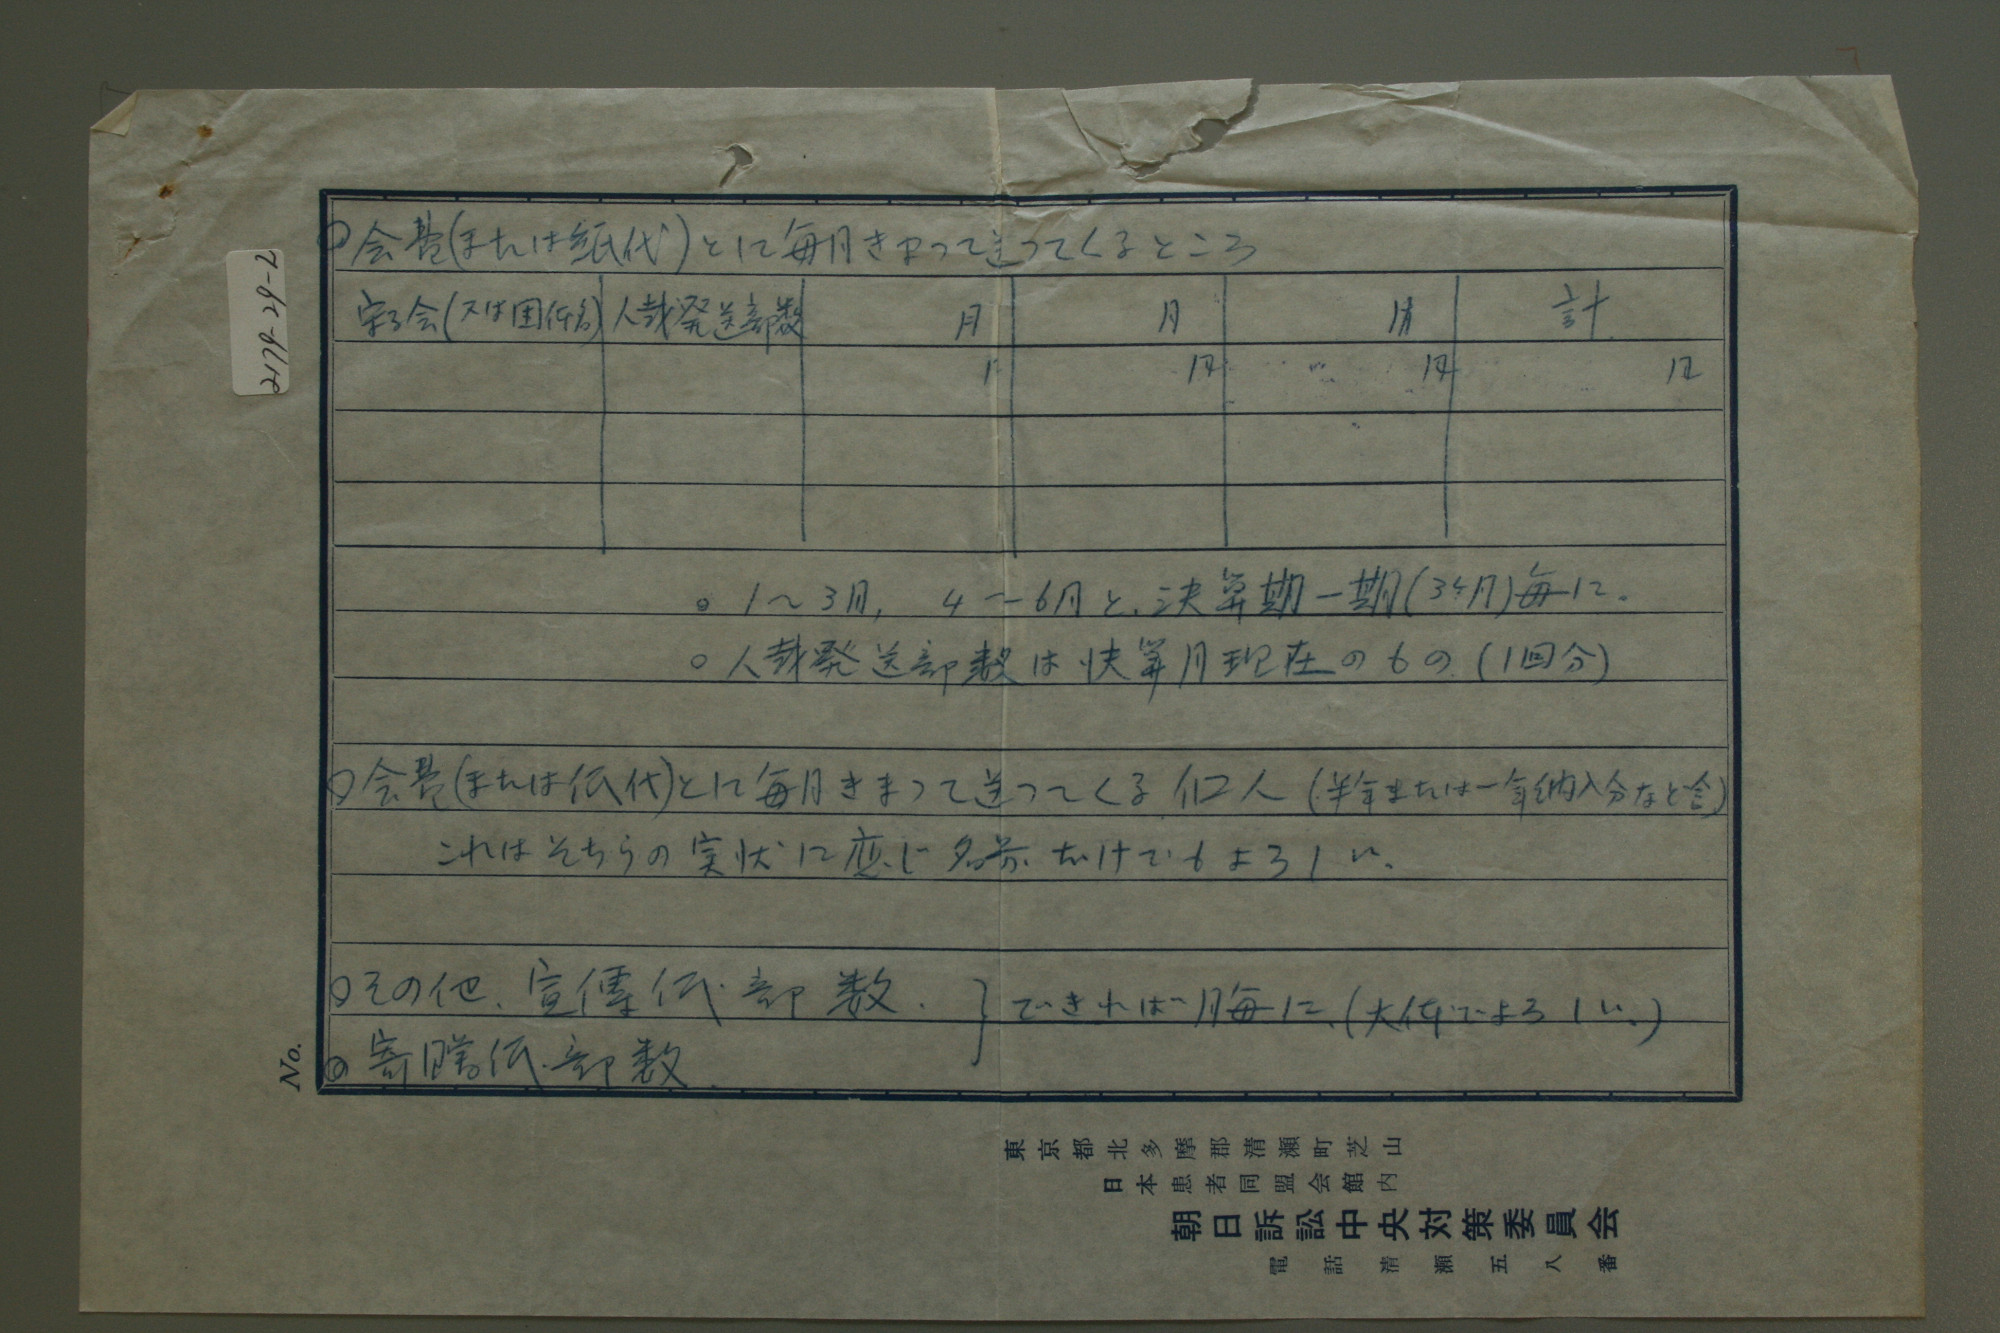 ○会費(または紙代)とに毎月きまって送ってくるところ
守る会(又は団体名) 人裁発送部数 月 月 月 計
円 円 円 円
○ 1〜3月, 4〜6月と、決算期一期(3ヶ月)毎に。
○ 人裁発送部数は決算月現在のもの(1回分)
○会費(または仾代)とに毎月きまって送ってくる個人(半年または一年納入分など含)
これはそちらの実状に応じ名前だけでもよろしい。
○その他、宣傳紙部数. できれば月毎に、(大体でよろしい。)
○寄贈紙部数.
No.
東京都北多摩郡清瀬町芝山
日本患者同盟会館内
朝日訴訟中央対策委員会
電話清瀬五八番
2179-29-7